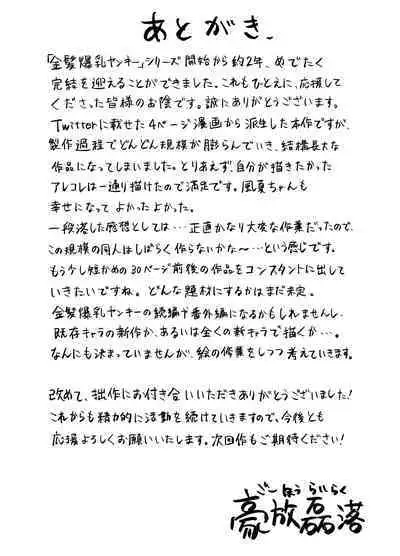 あとがき.
「金髪爆乳ヤンキー」シリーズ開始から約2年、めでたく
完結を迎えることができました。これもひとえに、応援して
くださった皆様のお陰です。誠にありがとうございます。
Twitterに載せた4ページ漫画から派生した本作ですが、
製作過程でどんどん規模が膨らんでいき、結構長大な
作品になってしまいました。とりあえず、自分が描きたかった
アレコレは一通り描けたので満足です。風夏ちゃんも
幸せになって よかったよかった。
一段落した感想としては…正直かなり大変な作業だったので、
この規模の同人はしばらく作らないかな〜…という感じです。
もう少し短かめの30ページ前後の作品をコンスタントに出して
いきたいですね。どんな題材にするかはまだ未定。
金髪爆乳ヤンキーの続編や番外編になるかもしれませんし、
既存キャラの新作か、あるいは全くの新キャラで描くか…。
なんにも決まっていませんが、絵の作業をしつつ考えていきます。
改めて、拙作にお付き合いいただきありがとうございました!
これからも精力的に活動を続けていきますので、今後とも
応援よろしくお願いいたします。次回作もご期待ください!
ごーほうらいらく
豪放磊落